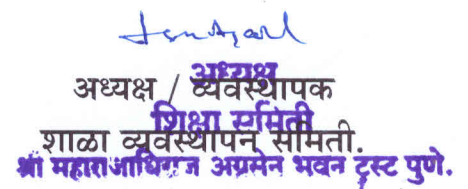 अध्यक्ष
अध्यक्ष / व्यवस्थापक
शिक्षा समिती
शाळा व्यवस्थापन समिती.
श्री महाराजाधिराज अग्रसेन भवन ट्रस्ट पुणे.